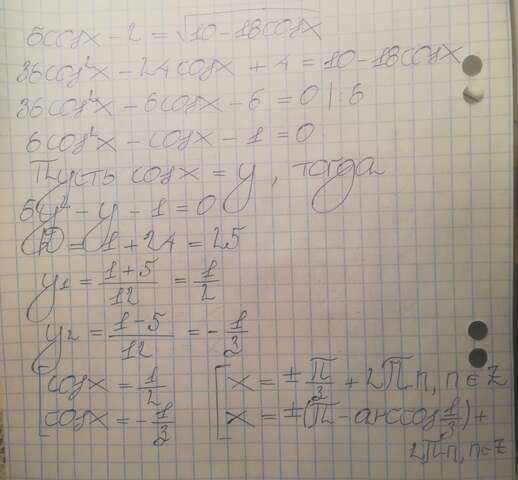 6cosx - 2 = √(10 - 18cosx)
36cos²x - 24cosx + 4 = 10 - 18cosx
36cos²x - 6cosx - 6 = 0 | : 6
6cos²x - cosx - 1 = 0
Пусть cosx = y, тогда
6y² - y - 1 = 0
D = 1 + 24 = 25
y₁ = (1+5)/12 = 1/2
y₂ = (1-5)/12 = -1/3
[cosx = 1/2 [x = ±π/3 + 2πn, n∈Z
[cosx = -1/3 [x = ±(π - arccos 1/3) +
2πn, n∈Z